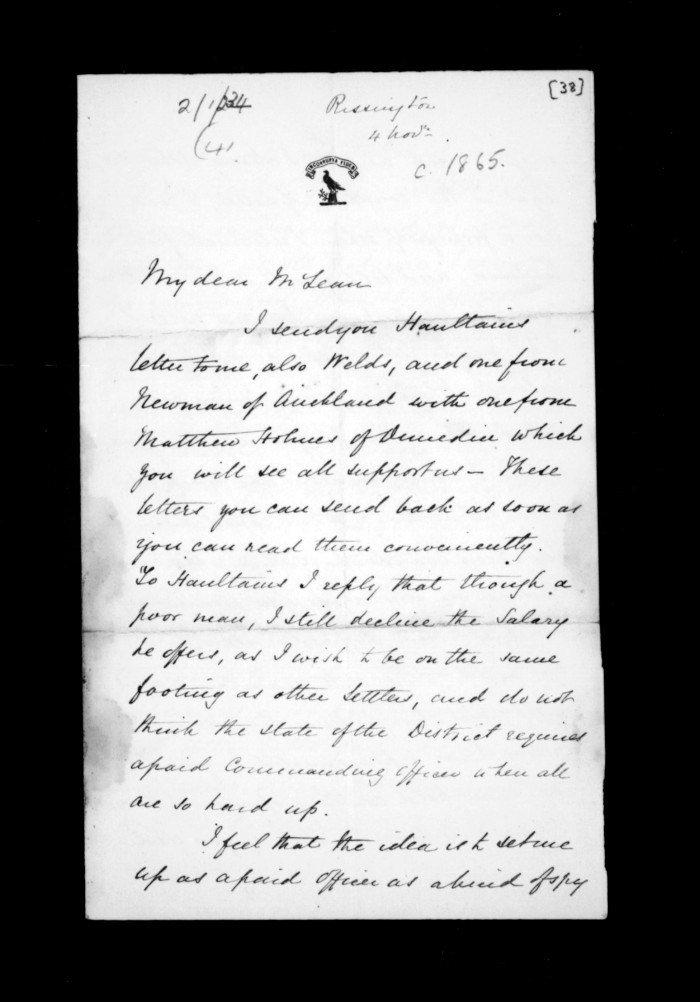 [38]
2/1/234
Rissington
(4)
4 Novr.
c. 1865.
My dear McLean
I send you Haultains
letter to me, also Welds, and one from
Newman of Auckland with one from
Matthew Holmes of Dunedin which
you will see all support us — These
letters you can send back as soon as
you can read them conveniently.
To Haultains I reply that though a
poor man, I still decline the Salary
he offers, as I wish to be on the same
footing as other Settlers, and do not
think the state of the District requires
a paid Commanding officer when all
are so hard up.
I feel that the idea is to set me
up as a paid officer as a kind of spy